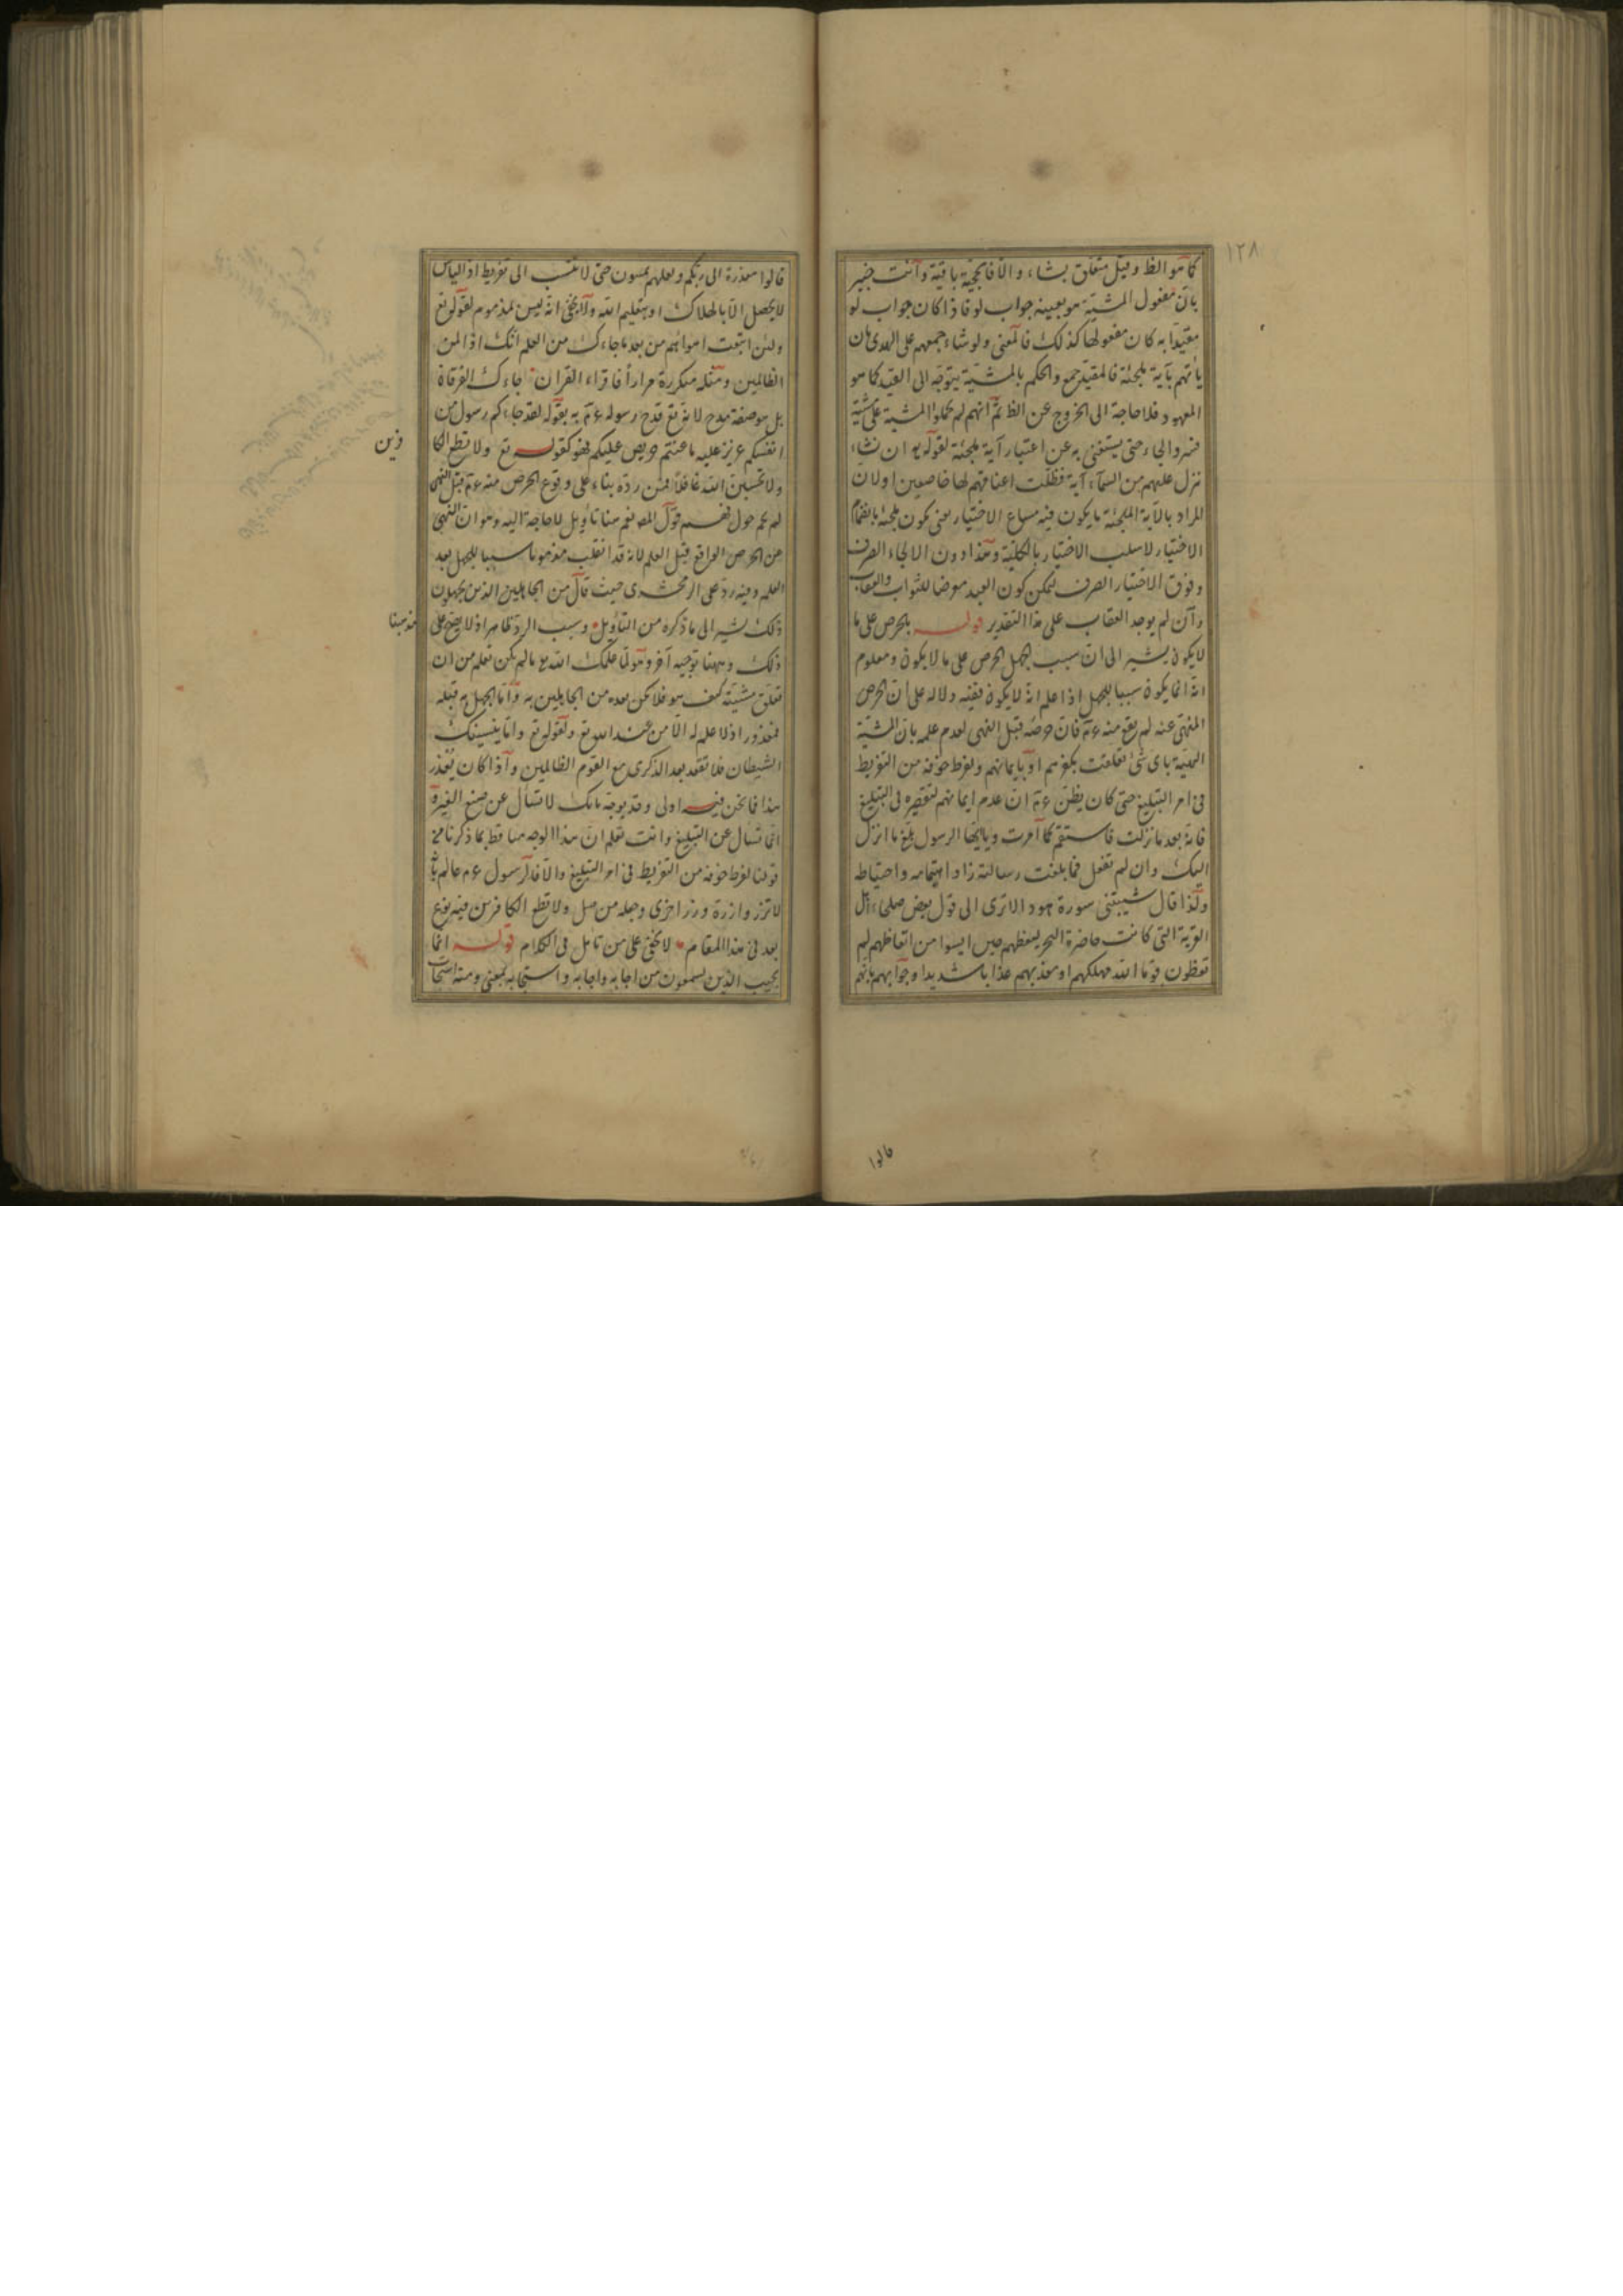 ١٢٨
كما هو الظ وقيل متعلق بشاء والا فالحجية باقية وانت خبير
بان مفعول المشية هو بعينه جواب لو فاذا كان جواب لو
مقيدا به كان مفعولها كذلك فالمعنى ولو شاء جمعهم على الهدى بان
يأتهم بآية ملجئة فالمقيد جمع والحكم بالمشية يتوجه الى القيد كما هو
المعهود فلا حاجة الى الخروج عن الظ ثم انهم لم يحملوا المشية على مشية
قسر والجاء حتى يستغنى به عن اعتبار آية ملجئة لقوله تع ان نشاء
ننزل عليهم من السماء آية فظلت اعناقهم لها خاضعين او لان
المراد بالآية الملجئة ما يكون فيه مساغ الاختيار يعنى يكون ملجئة بانضمام
الاختيار لا سلب الاختيار بالكلية وهذا دون الالجاء الصرف
وفوق الاختيار الصرف ليمكن كون العبد معرضا للثواب والعقاب
وان لم يوجد العقاب على هذا التقدير قوله بالحرص على ما
لا يكون يشير الى ان سبب الجهل الحرص على ما لا يكون ومعلوم
انه انما يكون سببا للجهل اذا علم انه لا يكون ففيه دلالة على ان الحرص
المنهى عنه لم يقع منه ءم فان حرصه قبل النهى لعدم علمه بان المشية
باى شئ تعلقت بكفرهم او بايمانهم ولفرط خوفه من التفريط
فى امر التبليغ حتى كان يظن ءم ان عدم ايمانهم لتقصيره فى التبليغ
فانه بعد ما نزلت فاستقم كما امرت ويا ايها الرسول بلغ ما انزل
اليك وان لم تفعل فما بلغت رسالته زاد اهتمامه واحتياطه
ولذا قال شيبتنى سورة هود الا ترى الى قول بعض صلحاء اهل
القرية التى كانت حاضرة البحر لبعضهم حين ايسوا من اتعاظهم لم
تعظون قوما الله مهلكهم او معذبهم عذابا شديدا وجوابهم بانهم
قالوا
قالوا معذرة الى ربكم ولعلهم يتقون حتى لا ننسب الى تفريط اذ الياس
لا يحصل الا بالهلاك او بتعليم الله ولا يخفى انه ليس بمذموم لقوله تع
ولئن اتبعت اهوائهم من بعد ما جاءك من العلم انك اذا لمن
الظالمين ومثله متكررة مرارا فاقراء القران جاءك الفرقاة
بل هو صفة مدح لانه تع قدح رسوله ءم به بقوله لقد جاءكم رسول من
انفسكم عزيز عليه ما عنتم حريص عليكم فهو كقوله تع ولا تطع الكا
فرين
ولا تحسبن الله غافلا فمن رده بناء على وقوع الحرص منه ءم قبل النهى
لم يحم حول فهم قول المص نعم هنا تأويل لا حاجة اليه وهو ان النهى
عن الحرص الواقع قبل العلم لانه قد انقلب مذموما سببا للجهل بعد
العلم وفيه رد على الزمخشرى حيث قال من الجاهلين الذين يجهلون
ذلك يشير الى ما ذكره من التأويل وسبب الرد ظاهر اذ لا يصح على
مذهبنا
ذلك وههنا توجيه آخر وهو لما علمك الله مع ما لم تكن تعلم من ان
تعلق مشيته كيف هو فلا تكن بعده من الجاهلين به واما الجهل به قبله
فمعذور اذ لا علم له الا من عند الله تع ولقوله تع واما ينسينك
الشيطان فلا تقعد بعد الذكرى مع القوم الظالمين واذا كان يعذر
هذا فما نحن فيه اولى وقد يوجه بانك لا تسأل عن صنع الغير
انما تسأل عن التبليغ وانت تعلم ان هذا الوجه ساقط بما ذكرنا من
قولنا لفرط خوفه من التفريط فى امر التبليغ والا فالرسول ءم عالم بانه
لا تزر وازرة وزر اخرى وجعله من مثل ولا تطع الكافرين فيه نوع
بعد فى هذا المقام لا يخفى على من تأمل فى الكلام قوله انما
يجيب الذين يسمعون من اجابه واجابه واستجابه بمعنى ومنه استجاب